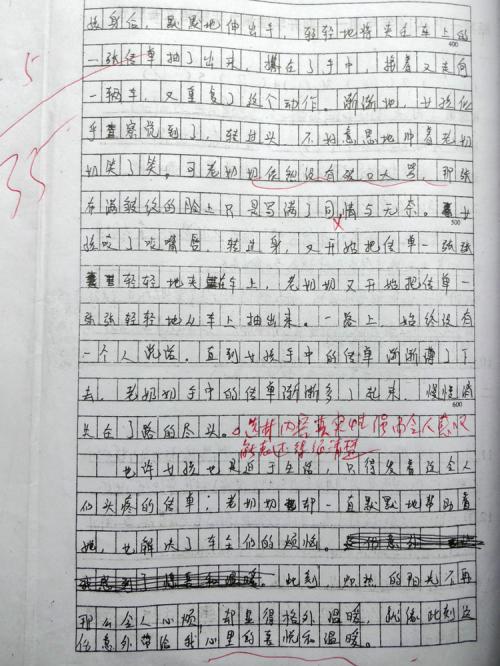 孩身后，默默地伸出手，轻轻地将夹在车上的
400
一张传单抽了出来，攥在了手中，接着又走向
一辆车，又重复了这个动作。渐渐地，女孩似
5
乎察觉到了，转过头，不好意思地冲着老奶
奶笑了笑。可老奶奶
35
布满皱纹的脸上只是写满了同情与无奈。女
500
孩咬了咬嘴唇，转过身，又开始把传单一张张
轻轻地夹在车上，老奶奶又开始把传单一
张张轻轻地从车上抽出来。一路上，始终没有
一个人说话。直到女孩手中的传单渐渐薄了下
去，老奶奶手中的传单渐渐多了起来，慢慢消
600
失在了路的尽头。
选材内容真实性强
能表达清楚
也许女孩也是迫于生活，只得发着这令人
们头疼的传单；老奶奶却一直默默地帮助着
她，也解决了车主们的烦恼。
此刻，炽热的阳光不再
那么令人心烦，却显得格外温暖，就像此刻这
份意外带给我心里的喜悦和温暖。